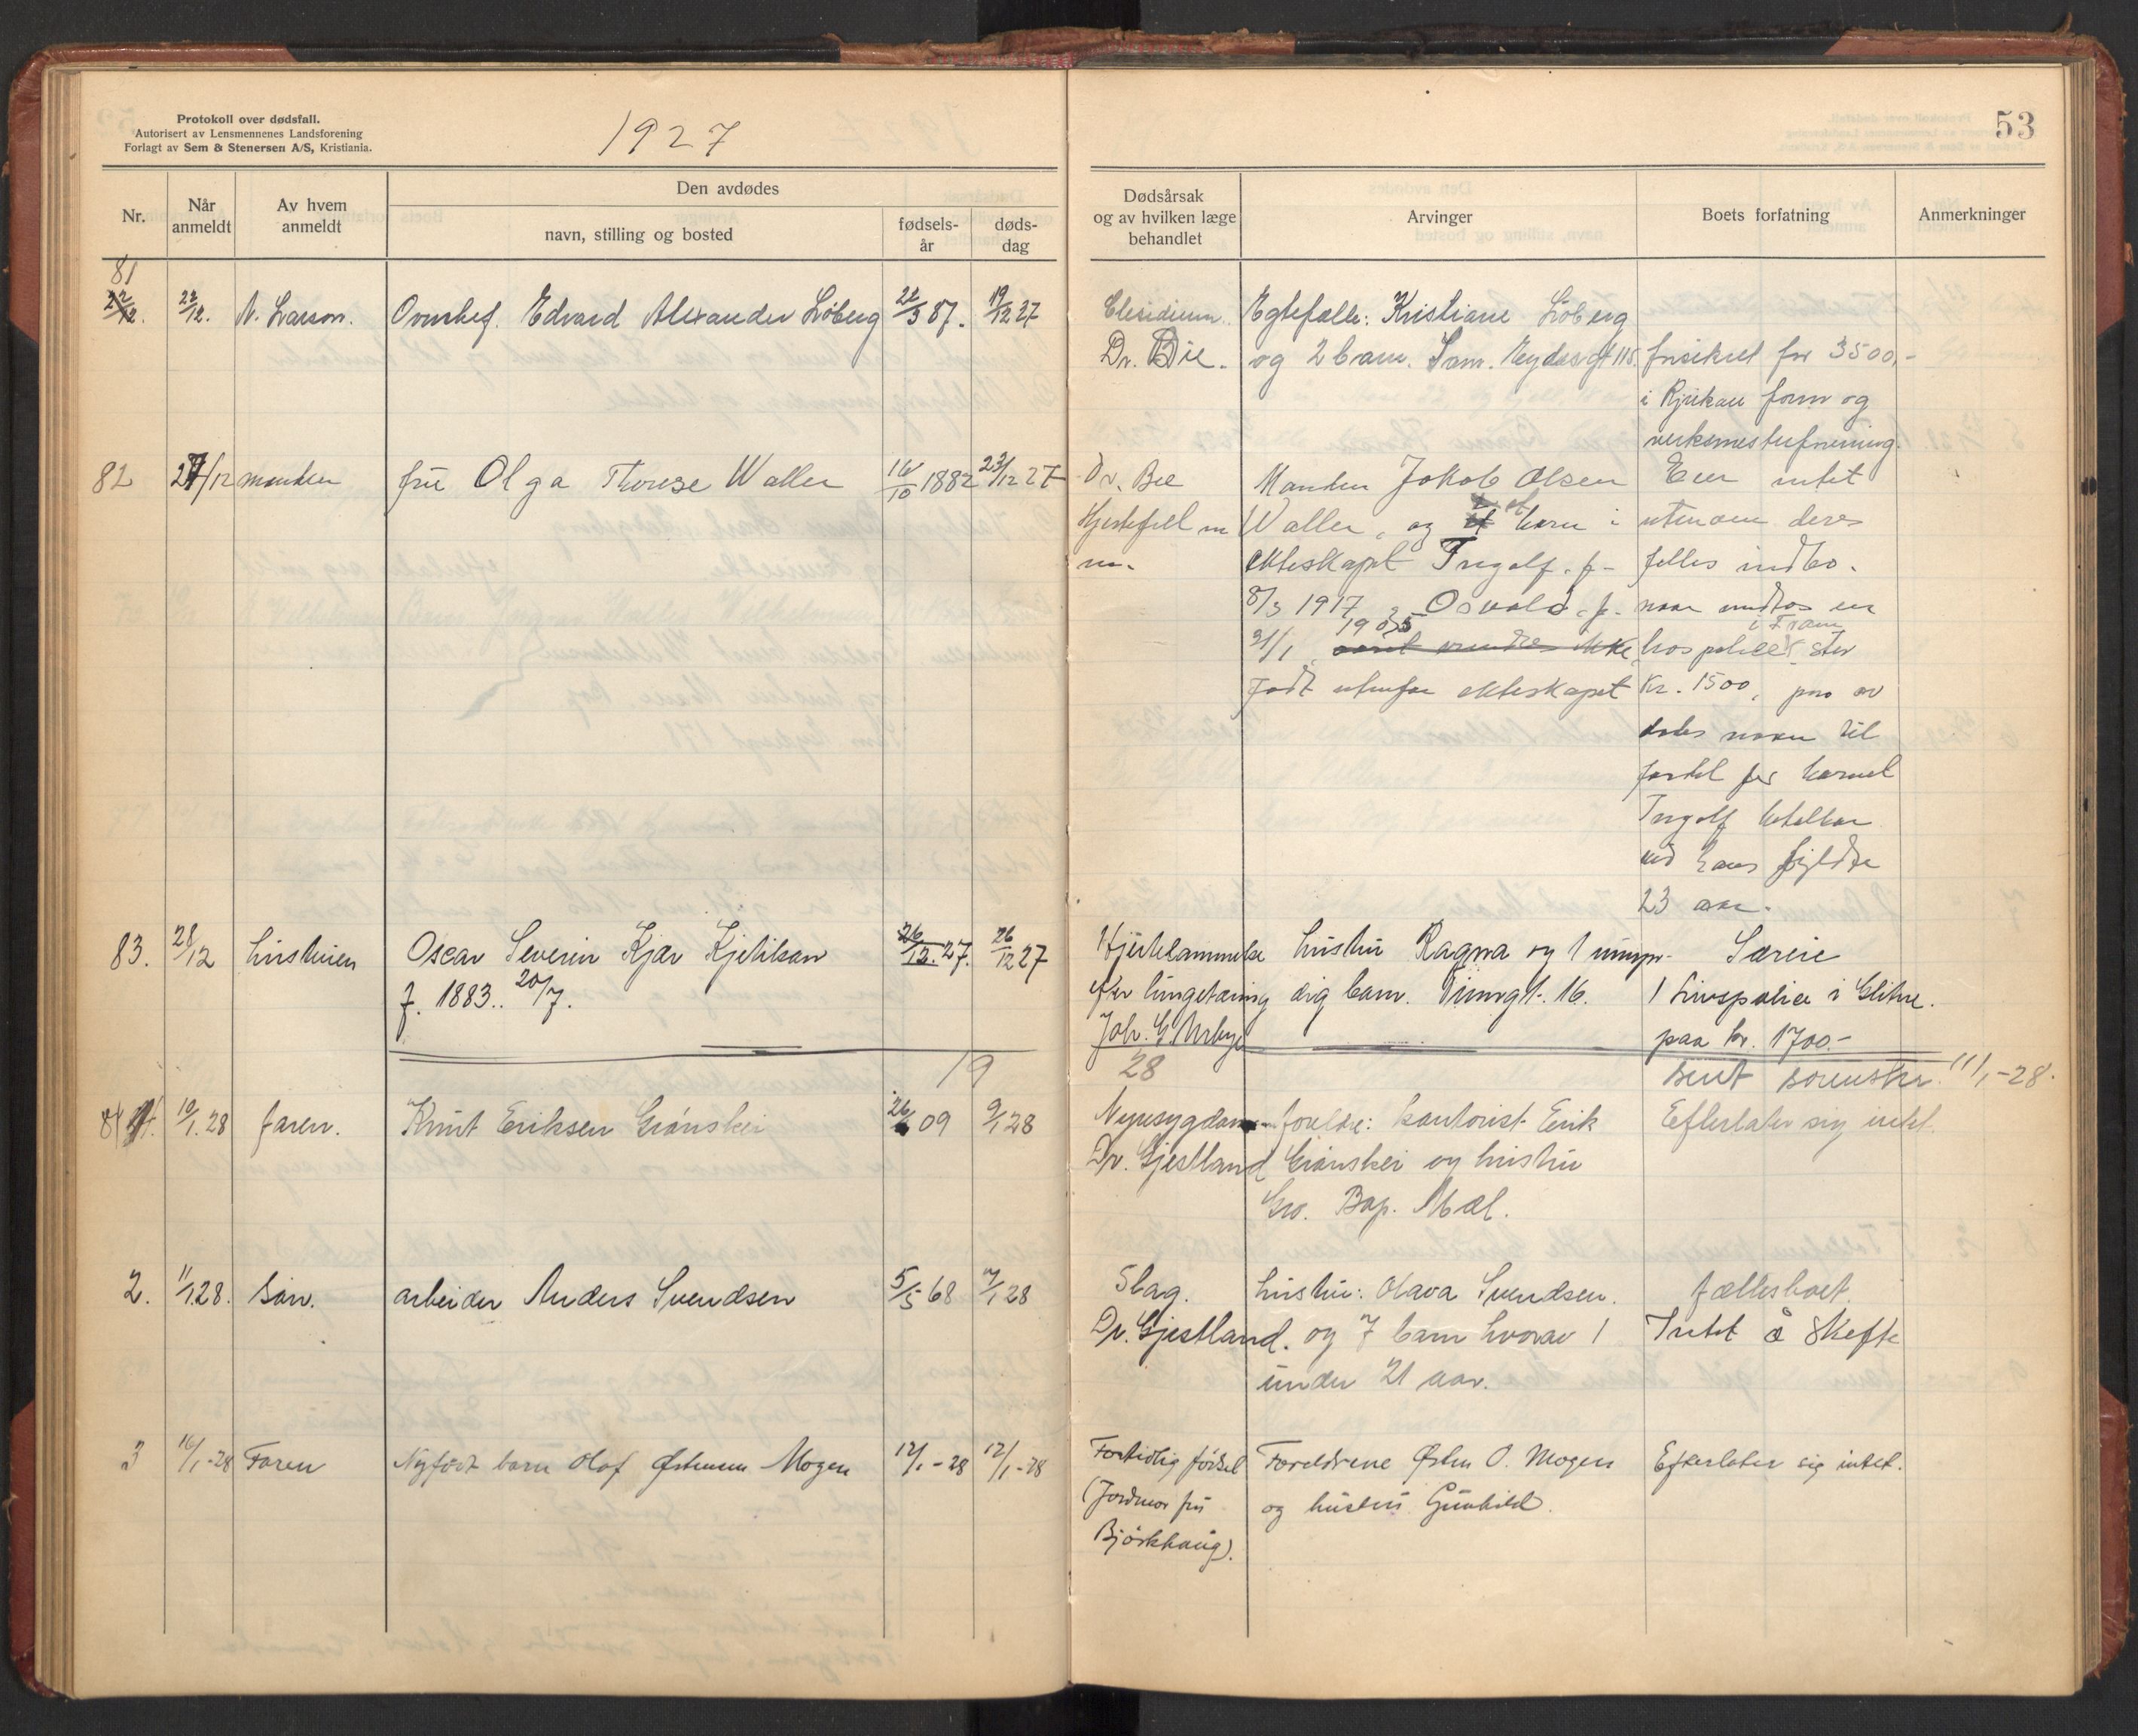 Protokoll over dødsfall.
Autorisert av Lensmennenes Landsforening
Forlagt av Sem & Stenersen A/S, Kristiania.
1927
53
Nr.
Når anmeldt
Av hvem anmeldt
Den avdødes
navn, stilling og bosted
fødsels-år
døds-dag
Dødsårsak og av hvilken læge behandlet
Arvinger
Boets forfatning
Anmerkninger
81
22/12. 22/12. N. Larson. Ovnshef. Edvard Alexander Løberg 22/3 87. 19/12 27
Dr. Bie.
Egtefælle: Kristiane Løberg
og 2 barn. Sam. Eydesgt 115.
forsikret for 3500,-
i Rjukan form og
verksmesterforening.
82 27/12 manden frü Olga Therese Waller 16/10 1882 23/12 27
Dr. Bie
Hjertefeil m
m.
Manden Jakob Olsen
Waller, og et barn i
ekteskapet Ingolf. f-
8/3 1917 Osvald. f.
21/1 1905
født utenfor ekteskapet
Eier intet
utenom deres
felles indbo.
naar undtas en
i Fram
livspolice stor
Kr. 1500, paa av
dødes navn til
fordel for barnet
Ingolf betalbar
ved hans fyldte
23 aar.
83. 28/12 hüstrüen Oscar Severin Kjær Kjetilsen 26/12. 27. 26/12 27
f. 1883.. 20/7.
Hjertelammelse
efter lungetæring
Joh. G. Urbye
hüstrü Ragna og 1 ümyn-
dig barn. Tinngt. 16.
Særeie
1 Livspolice i Glitne.
paa kr. 1700.-
1928
Sent sorenskr. 11/1-28.
84 1. 10/1. 28 faren. Knüt Eriksen Grønskei 26/6 09 9/1 28
Nyresygdom
Dr. Gjestland
foreldre: kontorist Erik
Grønskei og hüstrü
Gro. Bap. Mæl.
Efterlater sig intet.
2. 11/1 28. Søn. arbeider Anders Svendsen 5/5 68 7/1 28
Slag.
Dr. Gjestland.
hüstrü: Olava Svendsen.
og 7 barn hvorav 1
ünder 21 aar.
fællesboet.
Intet å skefte
3 16/1-28 Faren Nyfødt barn Olaf Østensen Mogen 12/1-28 12/1-28
Fortidlig fødsel
(Jordmor frü
Bjørkhaüg).
Foreldrene Østen O. Mogen
og hüstrü Günhild.
Efterlater sig intet.